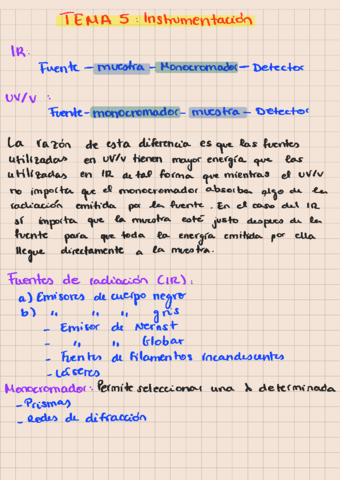 TEMA 5: Instrumentación
IR:
Fuente - muestra - Monocromador - Detector
UV/V:
Fuente - monocromador - muestra - Detector
La razón de esta diferencia es que las fuentes
utilizadas en UV/V tienen mayor energía que las
utilizadas en IR de tal forma que mientras el UV/V
no importa que el monocromador absorba algo de la
radiación emitida por la fuente. En el caso del IR
sí importa que la muestra esté justo después de la
fuente para que toda la energía emitida por ella
llegue directamente a la muestra.
Fuentes de radiación (IR):
a) Emisores de cuerpo negro
b) " " " gris
- Emisor de Nernst
- " " Globar
- Fuentes de filamentos incandescentes
- Láseres
Monocromador: Permite seleccionar una λ determinada
- Prismas
- Redes de difracción